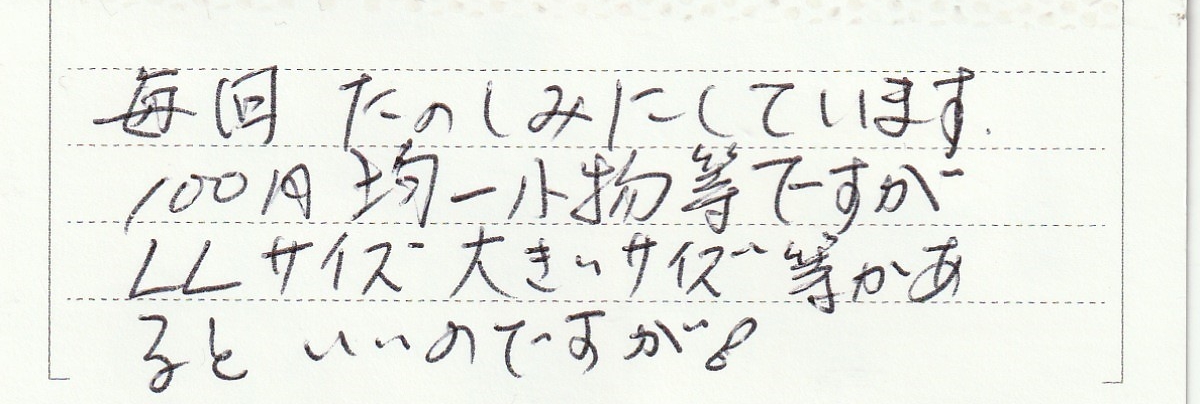 毎回 たのしみにしています.
100円均一小物等ですが
LLサイズ 大きいサイズ等があ
ると いいのですが。